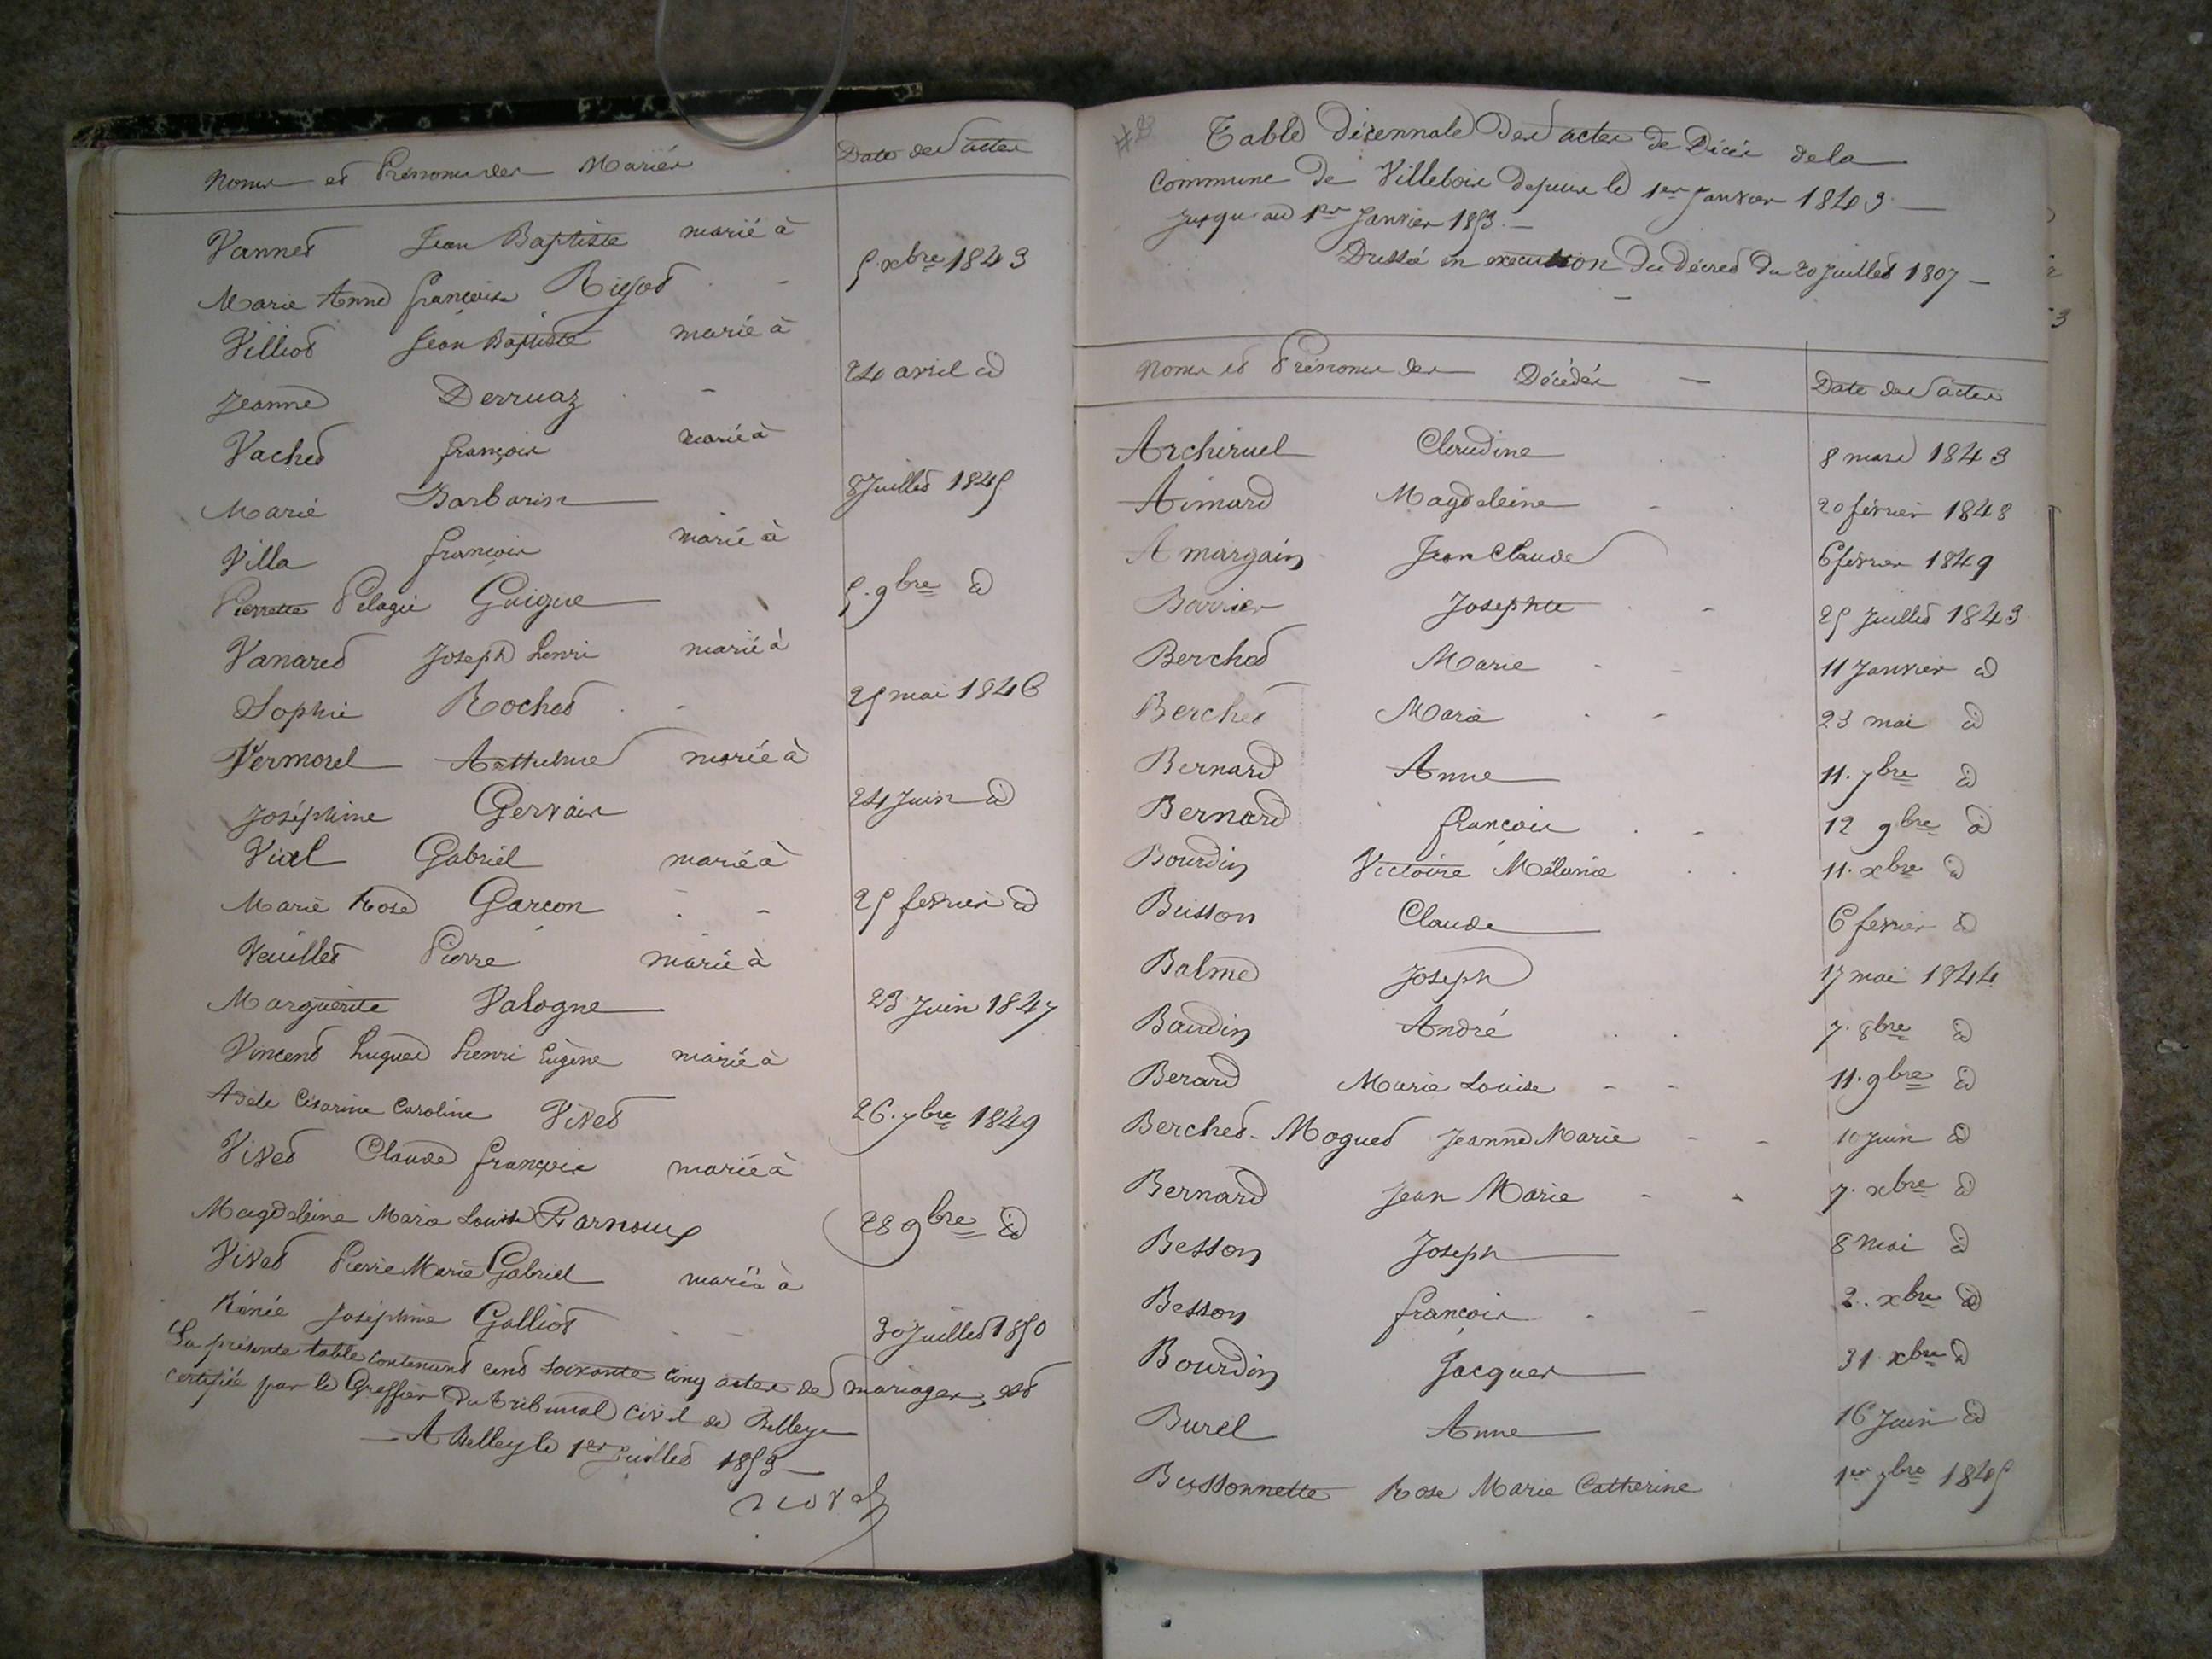 Noms et Prénoms des Mariés
Date des actes
Vannet Jean Baptiste marié à
Marie Anne françoise Rigot
5 xbre 1843
Villiot Jean Baptiste marié à
Jeanne Derruaz
24 avril id
Vachet françois marié à
Marie Barbarin
8 Juillet 1845
Villa françois marié à
Pierrette Pélagie Guigue
5. 9bre id
Vanaret Joseph henri marié à
Sophie Rochet
25 mai 1846
Vermorel Anthelme marié à
Joséphine Gervais
24 Juin id
Vial Gabriel marié à
Marie Rose Garçon
25 fevrier id
Veuillet Pierre marié à
Marguerite Valogne
23 Juin 1847
Vincent hugues henri Eugène marié à
Adele Césarine Caroline Vivet
26. 7bre 1849
Vivet Claude françois marié à
Magdeleine Marie Louise Rarnoux
28 9bre id
Vivet Pierre Marie Gabriel marié à
Rénée Joséphine Galliot
30 Juillet 1850
La présente table contenant cent soixante cinq actes de mariages, est
certifiée par le Greffier du tribunal civil de Belley
A Belley le 1er Juillet 1853
Table décennale des actes de Décès de la
Commune de Villebois depuis le 1er Janvier 1843
Jusqu'au 1er Janvier 1853.
Dressé en execution du décret du 20 Juillet 1807
Noms et Prénoms des Décédés
Date des actes
Archiruel Claudine 8 mars 1843
Aimard Magdeleine 20 février 1848
Amargain Jean Claude 6 février 1849
Barrier Josephte 25 Juillet 1843
Berchet Marie 11 Janvier id
Berchet Marie 23 mai id
Bernard Anne 11. 7bre id
Bernard françois 12 9bre id
Bourdin Victoire Mélanie 11. xbre id
Buisson Claude 6 fevrier id
Balme Joseph 17 mai 1844
Baudin André 7. 8bre id
Berard Marie Louise 11. 9bre id
Berchet-Moguet Jeanne Marie 10 Juin id
Bernard Jean Marie 7. xbre id
Besson Joseph 8 mai id
Besson françois 2. xbre id
Bourdin Jacques 31 xbre id
Burel Anne 16 Juin id
Bussonnette Rose Marie Catherine 1er 7bre 1845